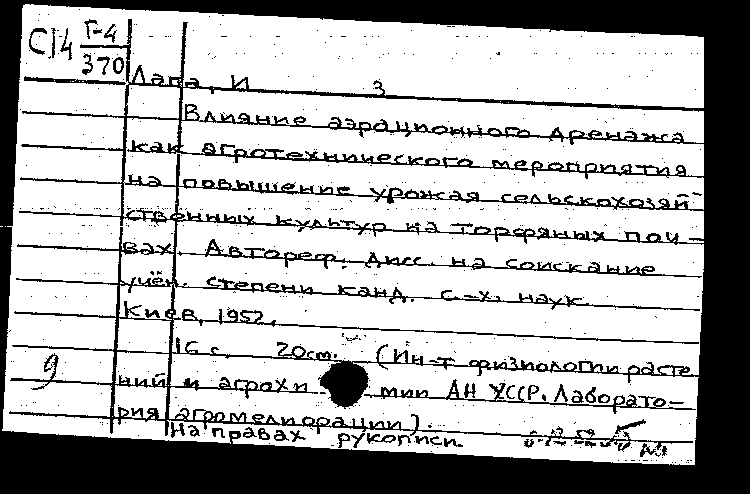 С14 Г-4
370
Лапа, И З
Влияние аэрационного дренажа
как агротехнического мероприятия
на повышение урожая сельскохозяй-
ственных культур на торфяных поч-
вах. Автореф. дисс. на соискание
учён. степени канд. с.-х. наук
Киев, 1952.
16 с. 20 см. (Ин-т физиологии расте
9 ний и агрохи мии АН УССР. Лаборато-
рия агромелиорации).
На правах рукописи.